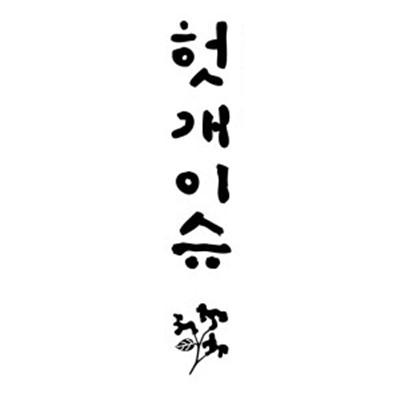 헛개이슈